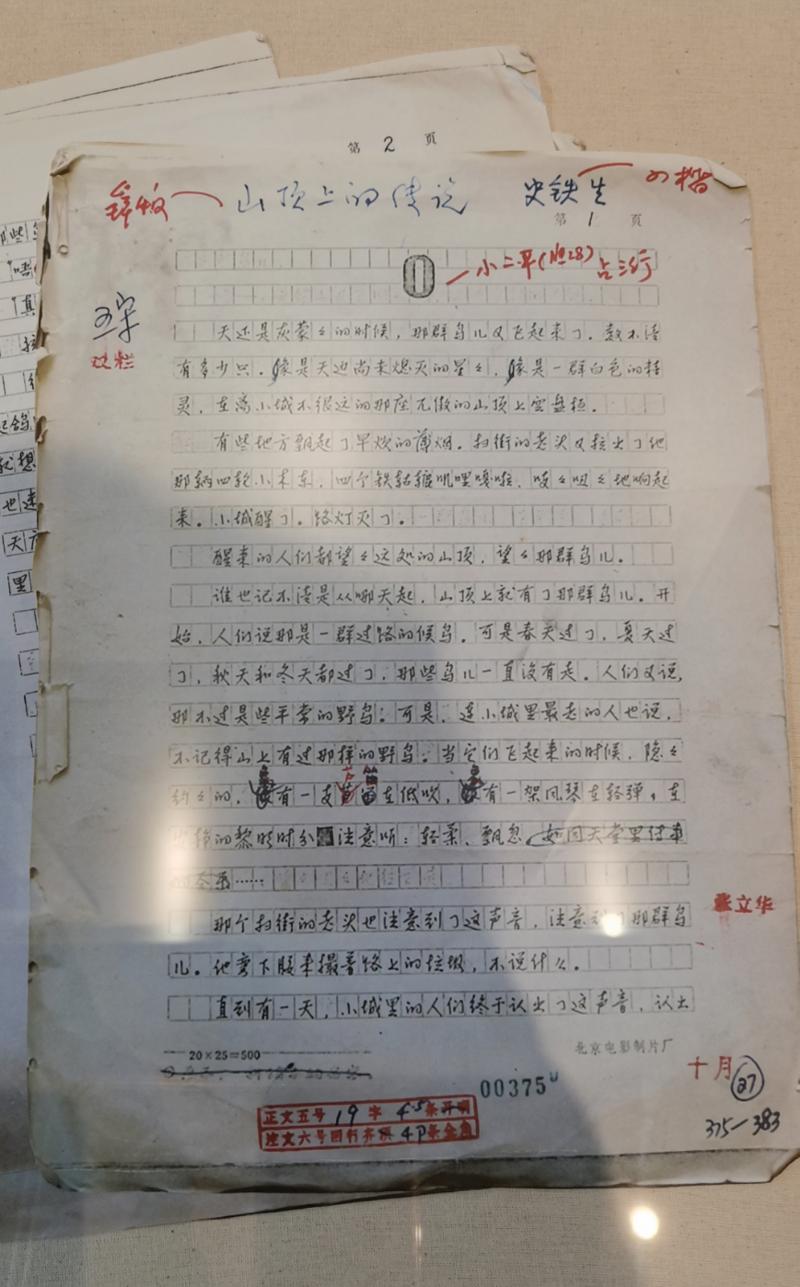 第 2 页
山顶上的传说 史铁生 小楷
第 1 页
小二平(№28)占三行
天还是灰蒙々的时候，那群鸟儿又飞起来了。数不清
有多少只。像是天边尚未熄灭的星々，像是一群白色的精
灵，在离小城不很远的那座无僚的山顶上空盘桓。
有些地方飘起了早炊的薄烟。扫街的老头又拉出了他
那辆四轮小木车，四个铁轱辘叽哩嘎啦、吱々吜々地响起
来。小城醒了。路灯灭了。
醒来的人们都望々这处的山顶，望々那群鸟儿。
谁也记不清是从哪天起，山顶上就有了那群鸟儿。开
始，人们说那是一群过路的候鸟。可是春天过了，夏天过
了，秋天和冬天都过了，那些鸟儿一直没有走。人们又说，
那不过是些平常的野鸟；可是，连小城里最老的人也说，
不记得山上有过那样的野鸟；当它们飞起来的时候，隐々
约々的，像有一支芦笛在低吹，像有一架风琴在轻弹，在
的黎明时分注意听：轻柔、飘忽、如同天堂里传来
的……
那个扫街的老头也注意到了这声音，注意到了那群鸟
儿。他弯下腰来撮着路上的垃圾，不说什么。
直到有一天，小城里的人们终于认出了这声音，认出
过栏
立华
20×25=500
北京电影制片厂
00375
十月 27
375—383
正文五号 19 字 4.5条开明
注文六号回行齐